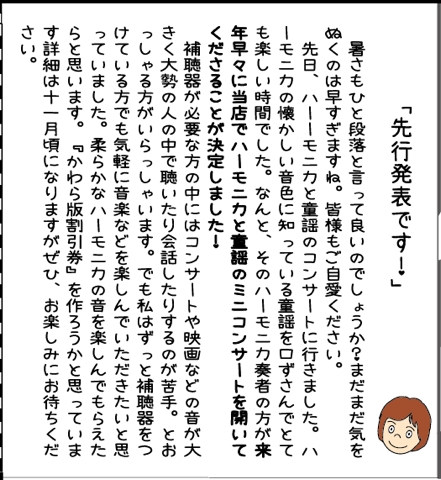 「先行発表です!」
暑さもひと段落と言って良いのでしょうか?まだまだ気を
ぬくのは早すぎますね。皆様もご自愛ください。
先日、ハーモニカと童謡のコンサートに行きました。ハ
ーモニカの懐かしい音色に知っている童謡を口ずさんでとて
も楽しい時間でした。なんと、そのハーモニカ奏者の方が来
年早々に当店でハーモニカと童謡のミニコンサートを開いて
くださることが決定しました!
補聴器が必要な方の中にはコンサートや映画などの音が大
きく大勢の人の中で聴いたり会話したりするのが苦手。とお
っしゃる方がいらっしゃいます。でも私はずっと補聴器をつ
けている方でも気軽に音楽などを楽しんでいただきたいと思
っていました。柔らかなハーモニカの音を楽しんでもらえた
らと思います。『かわら版割引券』を作ろうかと思っていま
す詳細は十一月頃になりますがぜひ、お楽しみにお待ちくだ
さい。